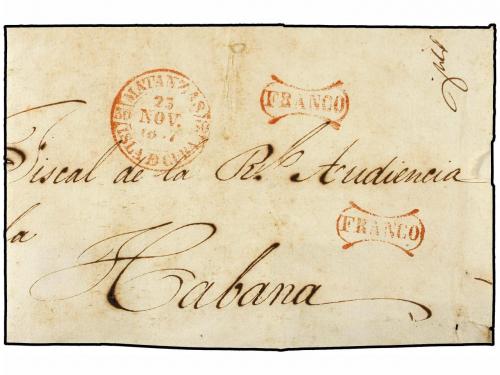 MATANZAS
23
NOV.
ISLA D CUBA
FRANCO
Fiscal de la Rl. Audiencia
FRANCO
la
Habana